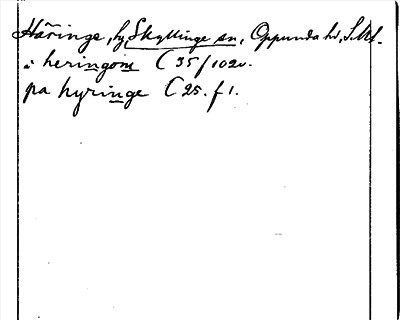 Häringe, by, Skyttinge sn, Oppunda hd, S.M.
i heringom C 35/102v.
pa hyringe C 25. f 1.